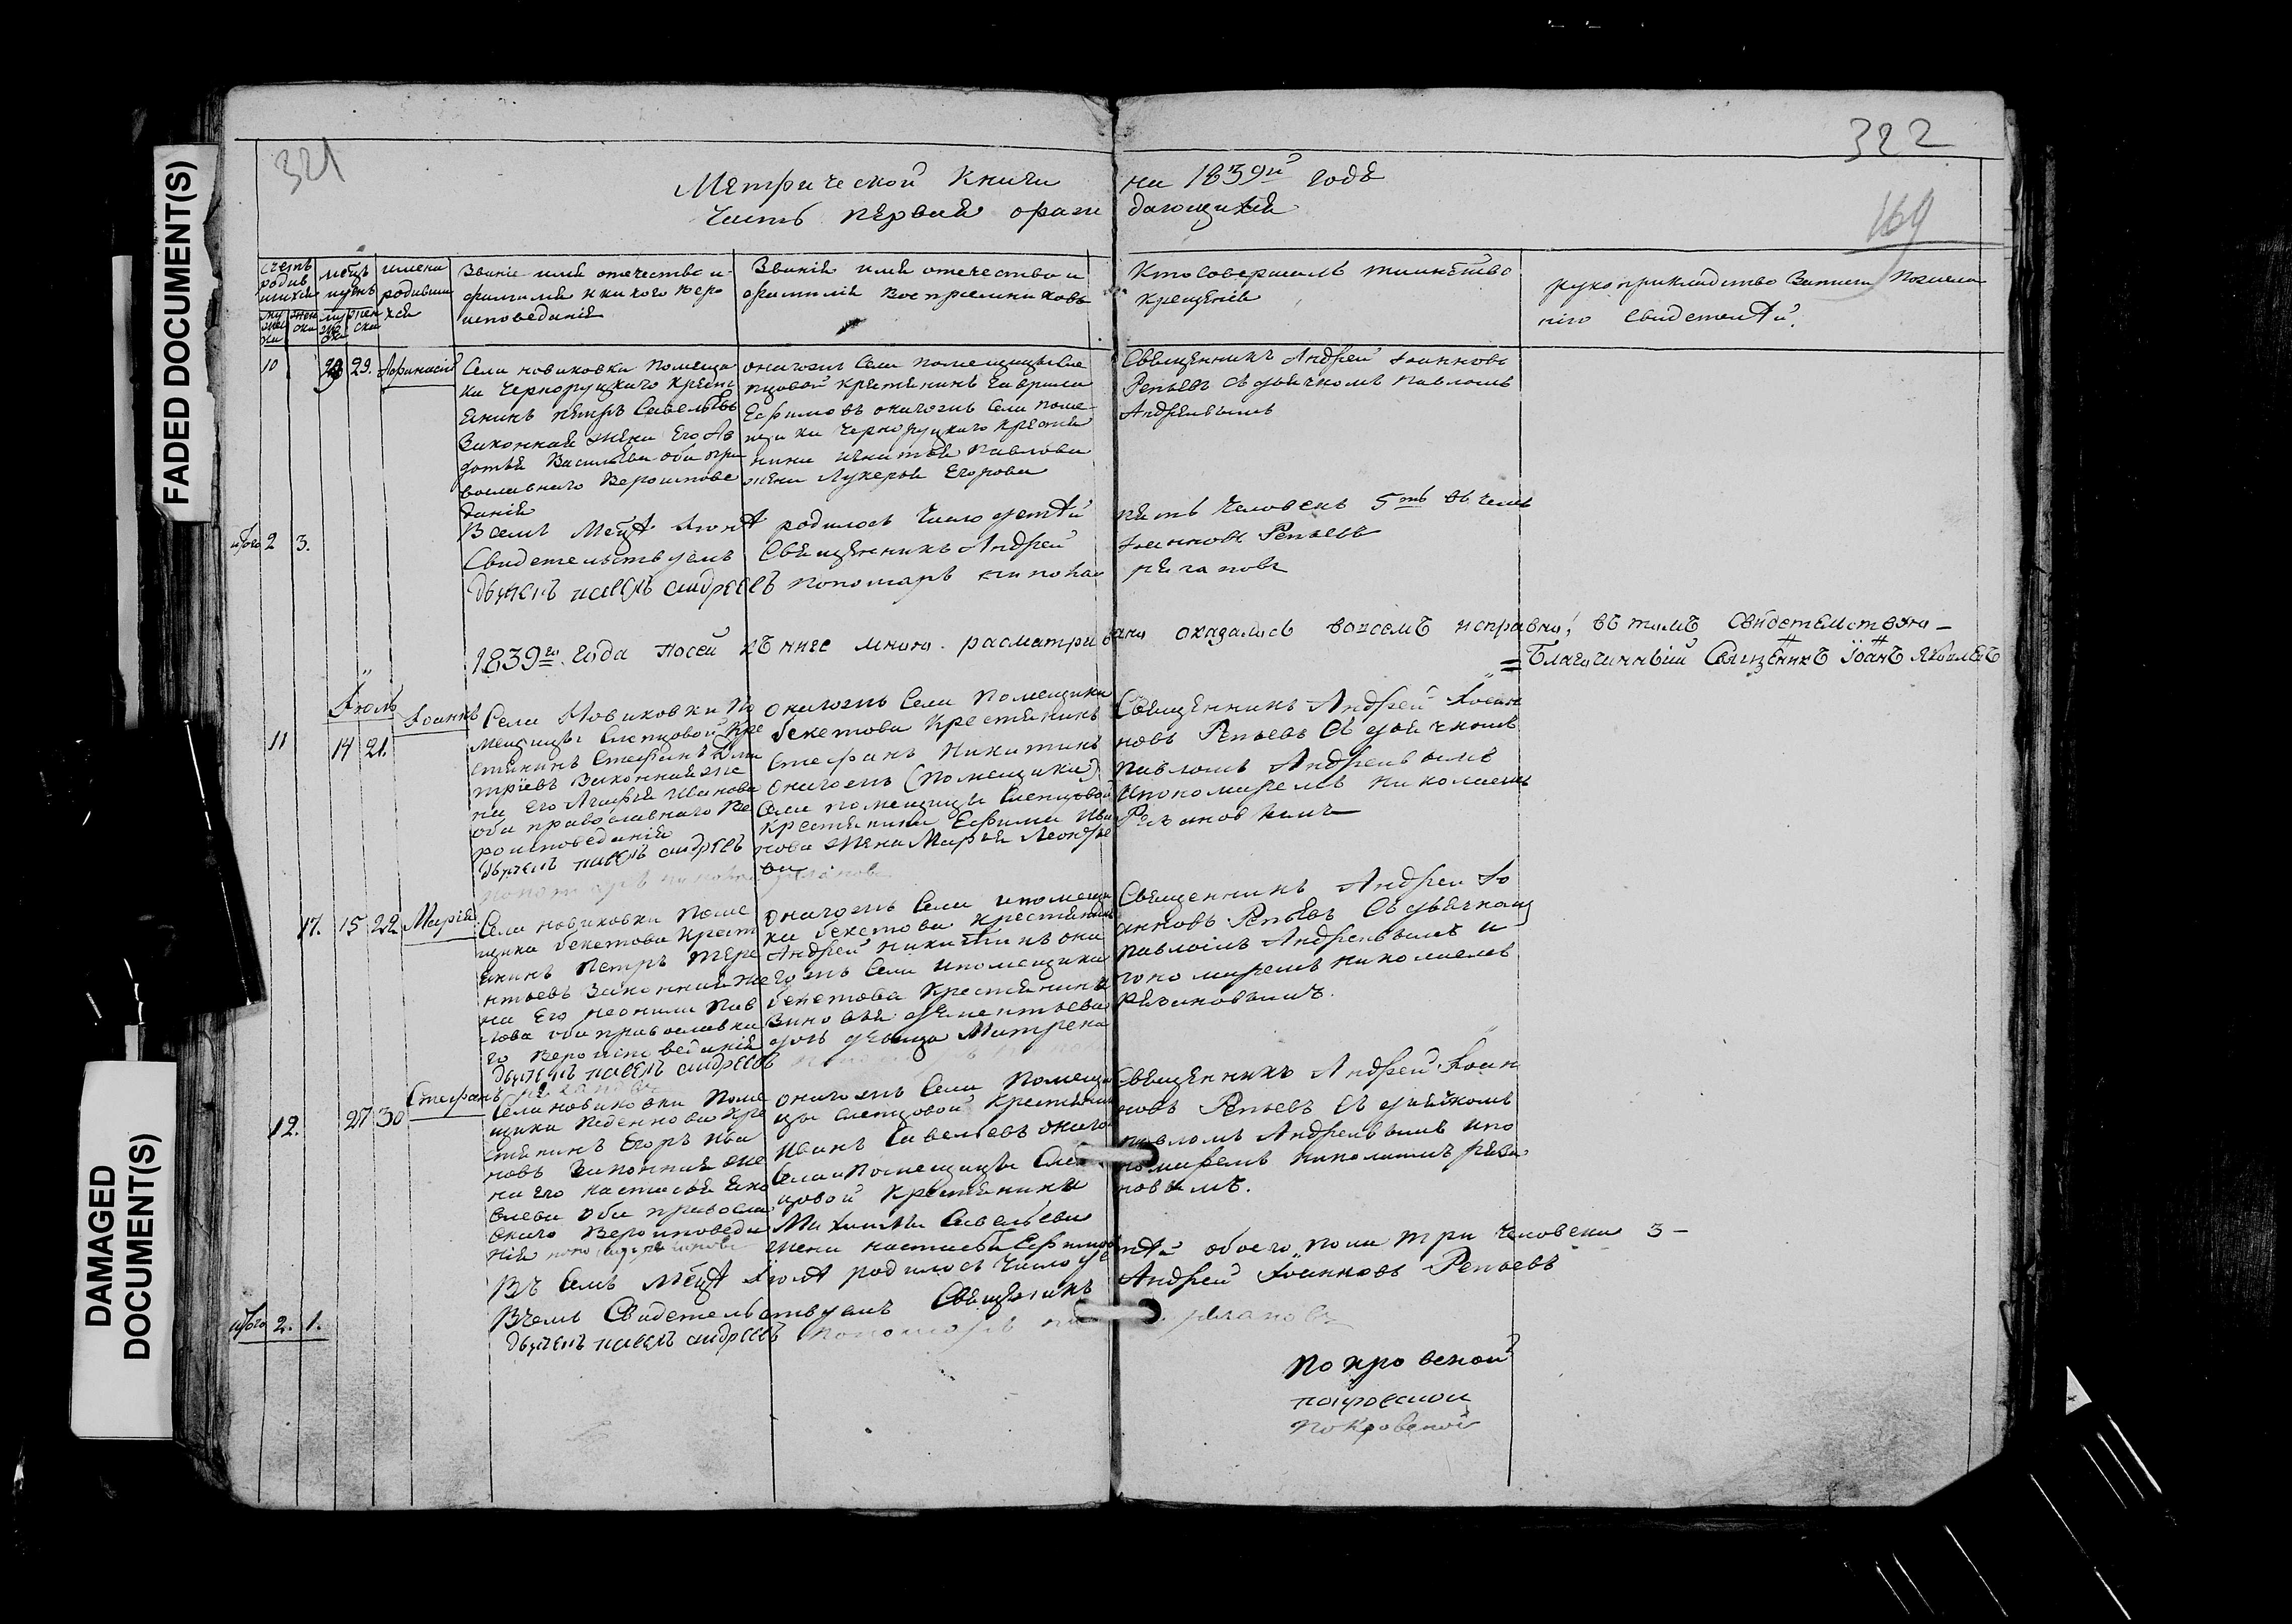 321
322
169
Метрической Книги на 1839й годъ
Часть первая ораж дающихся
Счетъ родив шихся
мужес ки
женс ки
мѣсць и день
му жес ки
жен ски
имена родивши хся
Званіе имя отечество и
фамилія и какого веро
исповеданія
Званія имя отечество и
фамилія Восприемниковъ
Кто совершалъ таинство
Крещенія
рукоприкладство Записи
свидетелей.
10
29.
Афанасій
Села новиковки помещи
ка Черноруцкаго Крест
янинъ петръ Савельевъ
Законная жена Его Ав
дотья Васильева оба пра
вославнаго Вероиспове
данія
онагожъ Села помещицы Сле
пцовой крестянинъ Гаврила
Ефимовъ онагожъ Села поме
щика Черноруцкаго Крестя
нина Игнатья Павлова
жена Лукерья Егорова
Священникъ Андрей Іоанновъ
Репьевъ Съ дьячкомъ павломъ
Андреевымъ
итого 2 3.
Всемъ Месцѣ Іюнѣ родилось Число детей пять Человекъ 5ть въ чемъ
Свидетельствуемъ Священникъ Андрей Іоанновъ Репьевъ
дьячекъ павелъ андреевъ пономарь николаи резановъ
1839го. года посей кънигѣ мною расматривано оказалось вовсемъ исправно, въ томъ свидетельствую-
=Благочинный Священникъ Іоаннъ Яковлевъ
Іюль
11
14 21.
Іоаннъ
Села Новиковки По
мещицы Слепцовой Кре
стянинъ Стефанъ Дми
тріевъ Законная же
на Его Агафья Иванова
оба православнаго Ве
роисповеданія
дьячекъ павелъ андреевъ
пономарь николаи резановъ
онагожъ Села помещика
бекетова Крестянинъ
Стефанъ Никитинъ
Онагожъ (помещика)
Села помещицы Слепцовой
Крестянина Ефима Ива
нова жена Марья Леонтье
ва
Священникъ Андрей Іоан
новъ Репьевъ Съ дьячкомъ
павломъ Андреевымъ
ипономаремъ николаемъ
Резановымъ
17. 15 22
Марія
Села новиковки поме
щика бекетова Крест
янинъ Петръ Тере
нтьевъ Законная же
на Его неонила Пав
лова оба православна
го Вероисповеданія
дьячекъ павелъ андреевъ
онагожъ Села ипомещи
ка бекетова крестянинъ
Андрей никитинъ она
гожъ Села ипомещика
бекетова Крестянина
Зиновья дементьева
дочь девица Матрена
Священникъ Андреи Іо
анновъ Репьевъ Съ дьячкомъ
павломъ Андреевымъ и
поно маремъ николаемъ
Резановымъ.
12.
27 30
Стефанъ
Села новиковки поме
щика Кре
стянинъ Егоръ Ива
новъ Законная же
на его настасья Яко
влева Оба правосла
внаго Вероисповеда
нія
онагожъ Села помещи
цы Слепцовой Крестянинъ
Иванъ Савельевъ онаго
Села ипомещицы Сле
пцовой Крестянина
Михаилы Савельева
жена настасья Ефимова
Священникъ Андрей Іоан
новъ Репьевъ Съ дьячкомъ
павломъ Андреевымъ ипо
номаремъ николаемъ реза
новымъ.
Въ Семъ месцѣ Іюлѣ родилось Число детей обоего пола три Человека 3-
Вчемъ Свидетельствуемъ Священникъ Андрей Іоанновъ Репьевъ
дьячекъ павелъ андреевъ пономарь резановъ
итого 2. 1.
покровской
покровской
покровской
FADED DOCUMENT(S)
DAMAGED
DOCUMENT(S)